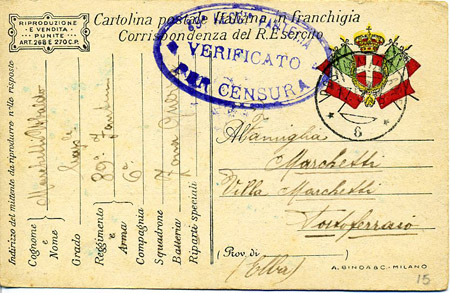 RIPRODUZIONE
E VENDITA
PUNITE
ART. 268 E 270 C.P.
Cartolina postale italiana in franchigia
Corrispondenza del R. Esercito
VERIFICATO
PER CENSURA
6
Indirizzo del mittente da riprodurre nello risposto
Cognome e Nome
Grado
Reggimento e Arma 89º
Compagnia 6ª
Squadrone
Batteria
Riparti speciali
Alla Famiglia
Marchetti
Villa Marchetti
Portoferraio
(Prov. di
(Elba)
A. GINOA & C. - MILANO
15